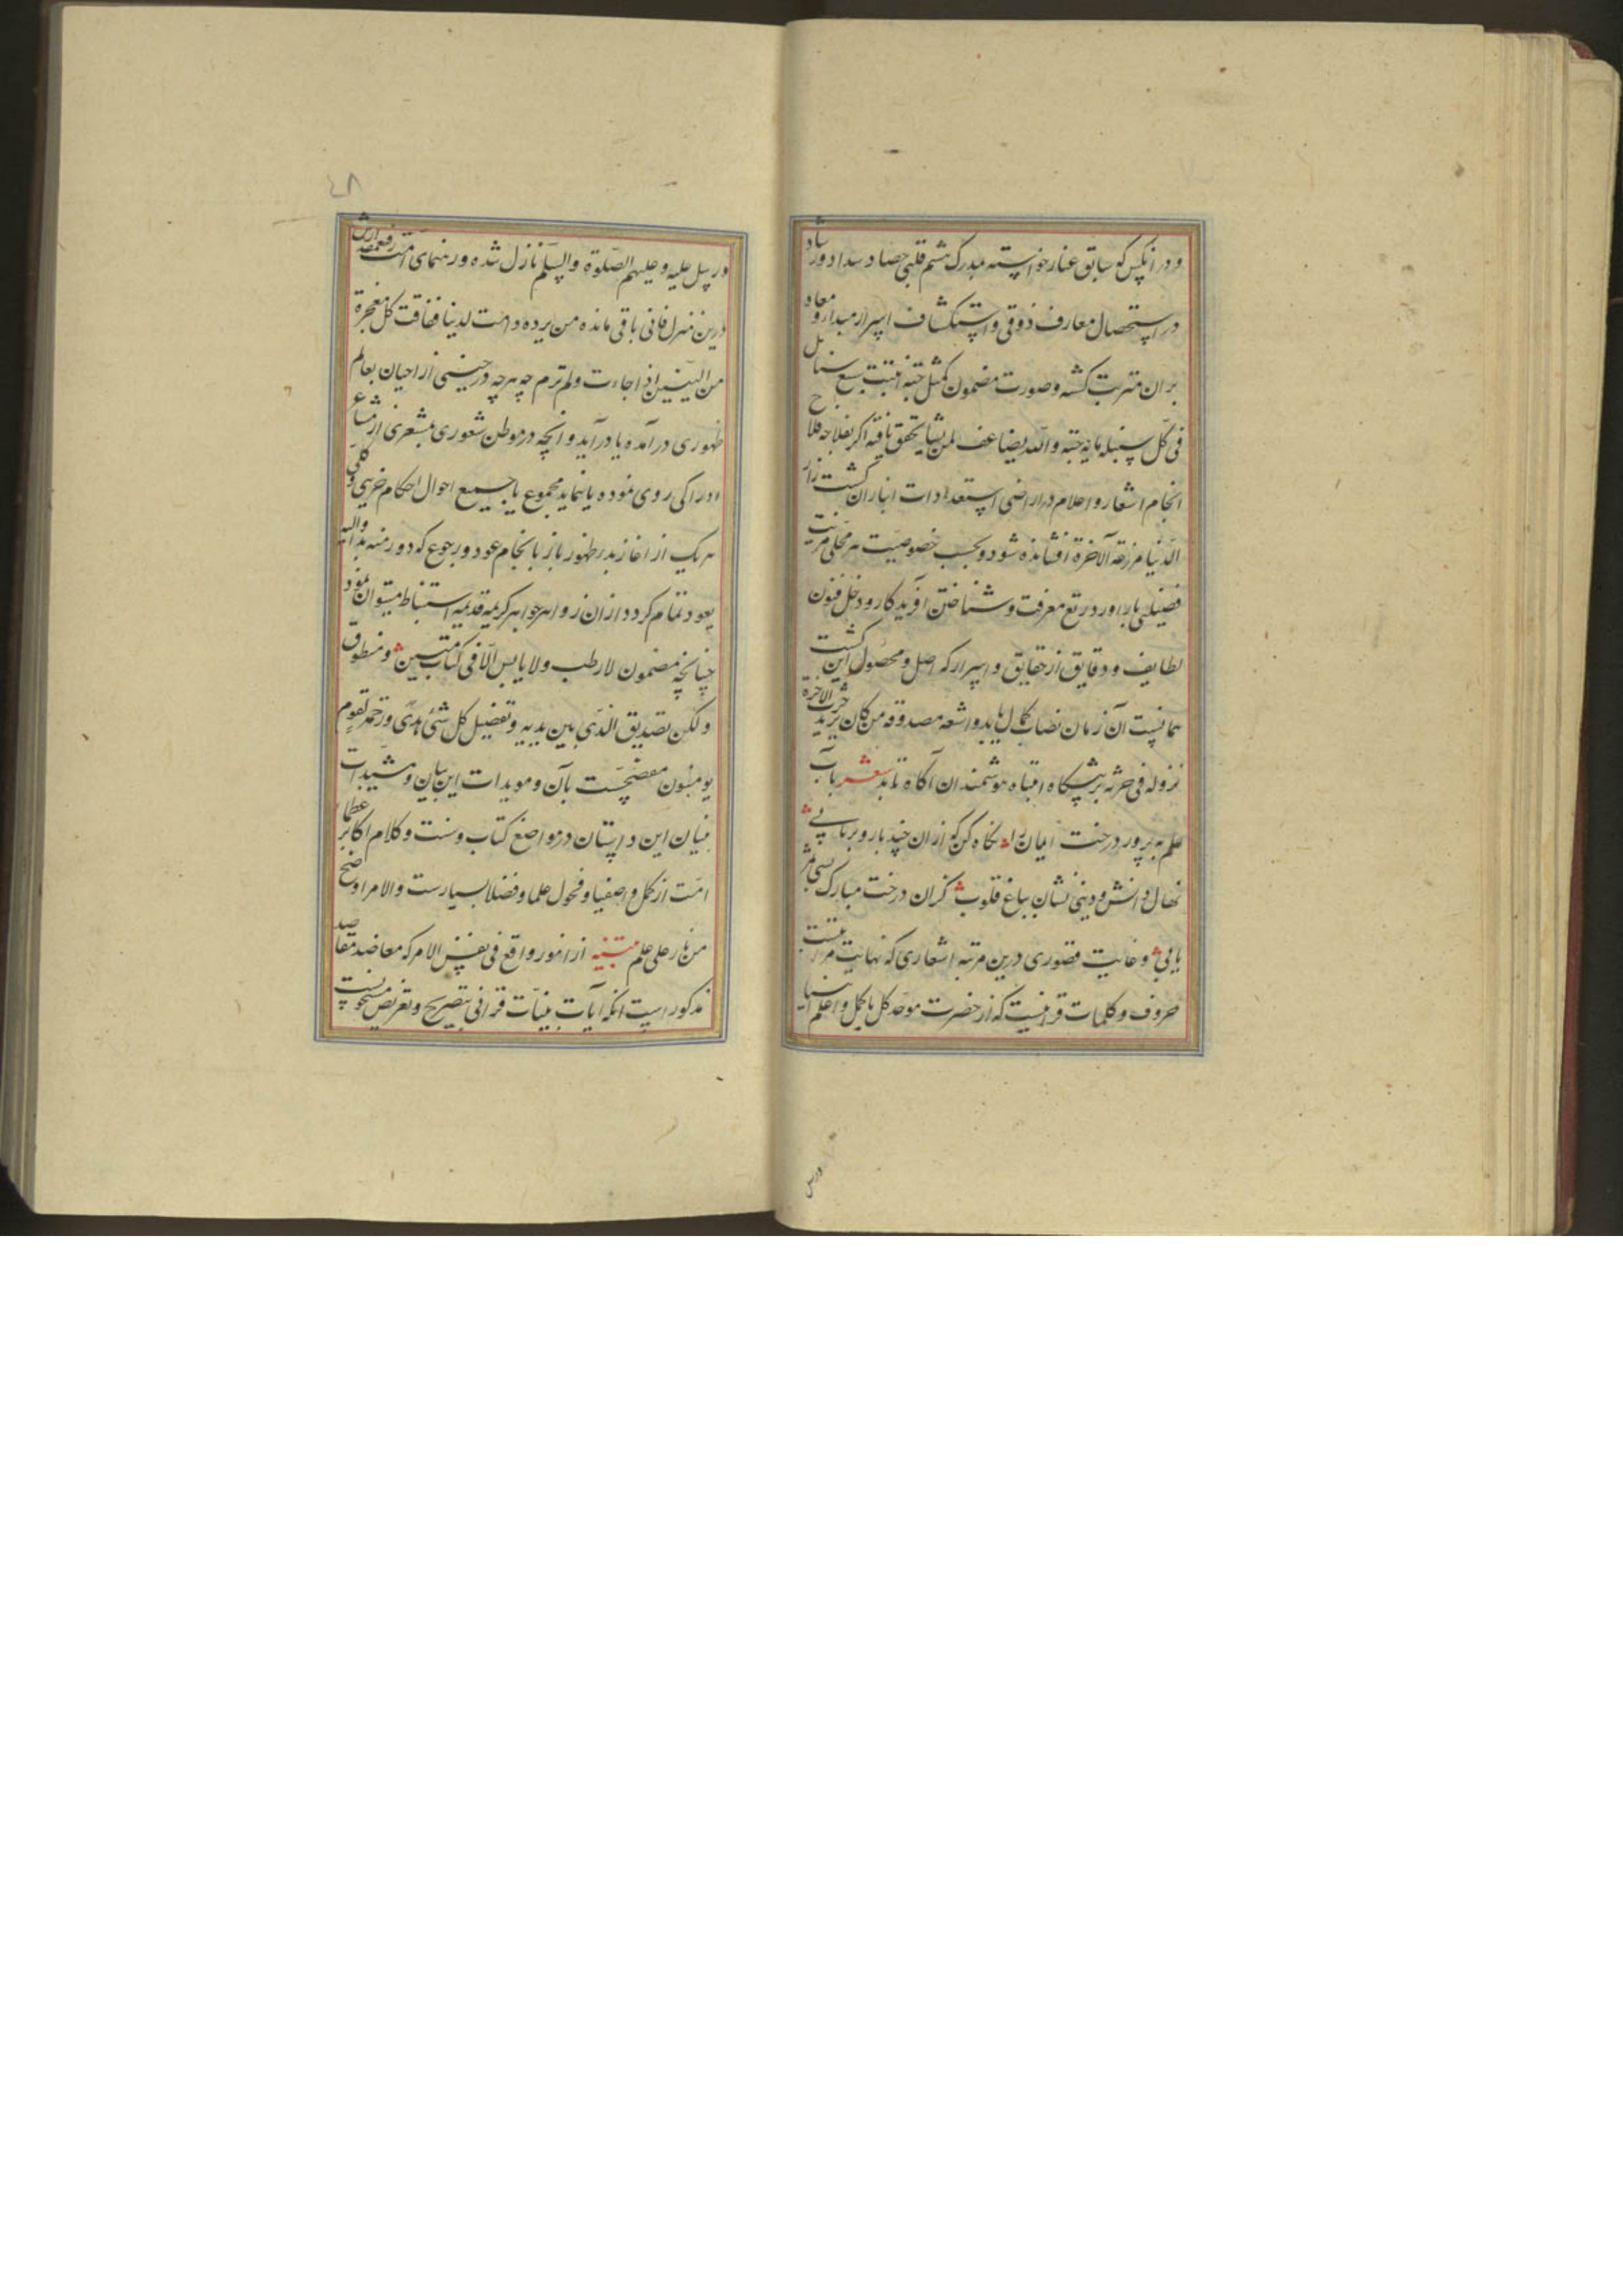 و در انکس کو سابق عنار خواسته مدرک هشم قلبی حصاد سداد و رشاد
در استحصال معارف ذوقی و استکشاف اسرار مبدا و معاد
بران مترتب کشته و صورت مضمون کمثل حبة انبتت سبع سنابل
فی کل سنبله مایه حبة و الله یضاعف لمن یشا تحقق یافته اکر بفلاحه فلاح
انجام اشعار و اعلام در اراضی استعدادات انباران کشت زار
الدنیا مزرعة الآخرة افشانده شود و بحسب خصوصیت هر محلی مرتبت
فضیلتی بار اورد ریع معرفت و شناختن افریدکار و دخل فنون
لطایف و دقایق از حقایق و اسرار که اصل و محصول این کشت
همانست آن زمان نصاب کمال یابد و اشعه مصدوقه من کان یرید حرث الاخرة
نزد له فی حرثه بر پیشکاه انتباه هوشمندان آکاه تابد شعر باب
علم به پرور درخت ایمان را نکاه کن کو ازان چند بار و بر یابی
نهال دانش و دینی نشان بباغ قلوب کزان درخت مبارک بسی ثمر
یابی و غایت قصوری درین مرتبه اشعاری که نهایت مراتبست
حروف و کلمات قرانیست که از حضرت موحد کل باکمل و اعلم انبیا
درس
٤٨
و رسل علیه و علیهم الصلوة والسلم نازل شده و رهنمای امت رفیع مقدارش
درین منزل فانی باقی مانده من یرده دامت لدینا ففاقت کل معجزة
من النبیین اذ جاءت ولم تدم چه هرچه در حینی از احیان بعالم
ظهوری در آمده یا در آید و انچه در موطن شعوری بمشعری از مشاعر
ادراکی روی نموده یا نماید مجموع با جمیع احوال احکام جزیی و کلی
هر یک از اغاز بدر ظهور باز با نجام عود و رجوع که دور منه بدا والیه
یعود تمام کردد ازان زواهر جواهر کریمه قدیمه استنباط میتوان نمود
چنانچه مضمون لا رطب ولا یابس الا فی کتاب مبین و منطوق
ولکن تصدیق الذی بین یدیه و تفصیل کل شئ و هدی و رحمة لقوم
یومنون مفصحست بآن و مویدات این بیان و مشیدات
بنیان این داستان در مواضع کتاب و سنت و کلام اکابر عظما
امت از کمل و اصفیا و فحول علما و فضلا بسیارست والامر اوضح
من نار علی علم تنبیه از امور واقع فی نفس الامر که معاضد مقاصد
مذکور است انکه آیات بینات قرانی بتصریح و تعریض